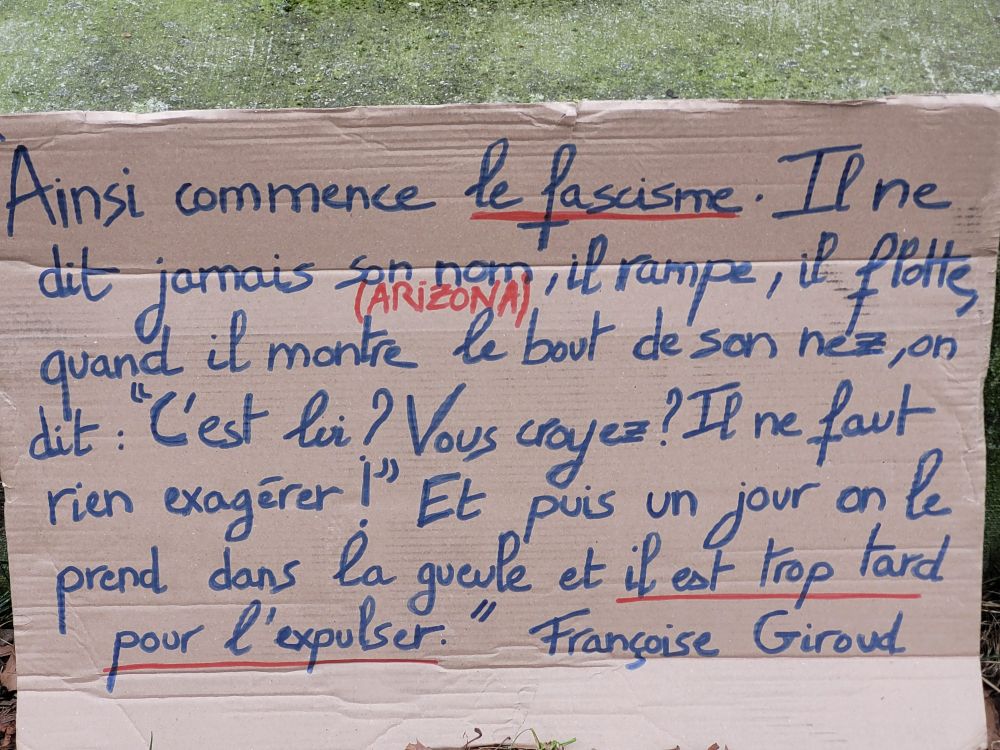 "Ainsi commence le fascisme. Il ne
dit jamais son nom, il rampe, il flotte,
(ARIZONA)
quand il montre le bout de son nez, on
dit : "C'est lui ? Vous croyez ? Il ne faut
rien exagérer !" Et puis un jour on le
prend dans la gueule et il est trop tard
pour l'expulser." Françoise Giroud